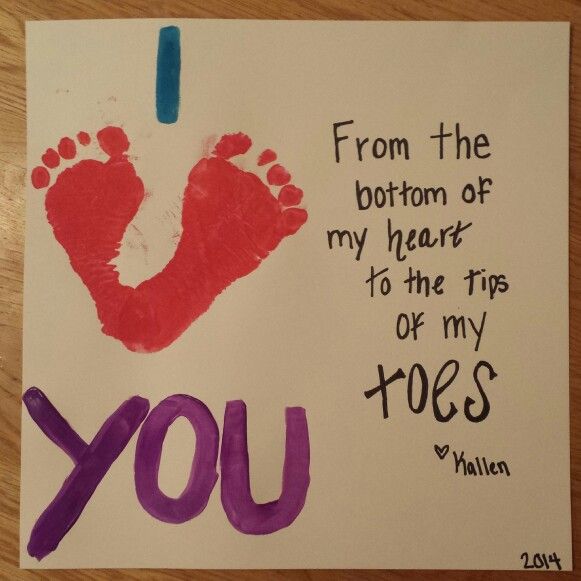 I
YOU
From the
bottom of
my heart
to the tips
of my
toes
♡ Kallen
2014